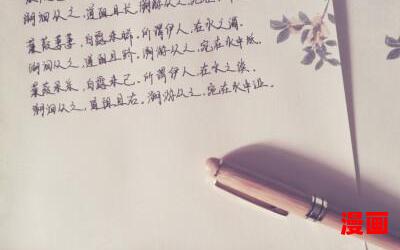 溯洄从之，道阻且长，溯游从之，宛在
蒹葭萋萋，白露未晞，所谓伊人，在水之湄。
溯洄从之，道阻且跻，溯游从之，宛在水中坻。
蒹葭采采，白露未已，所谓伊人，在水之涘。
溯洄从之，道阻且右。溯游从之，宛在水中沚。
漫画